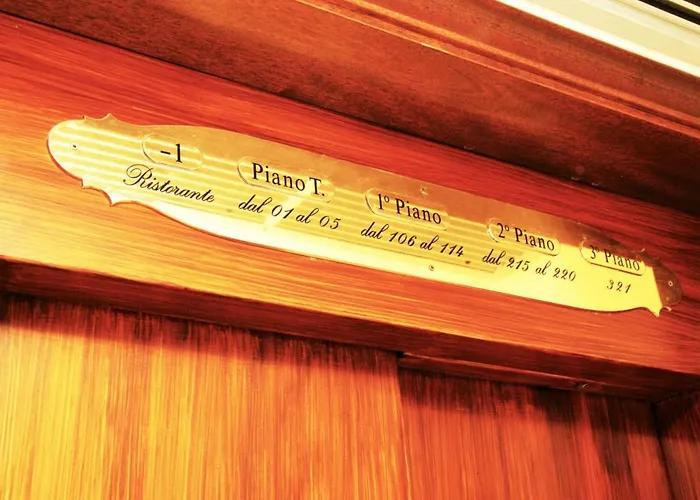 -1
Ristorante
Piano T.
dal 01 al 05
1° Piano
dal 106 al 114
2° Piano
dal 215 al 220
3° Piano
321